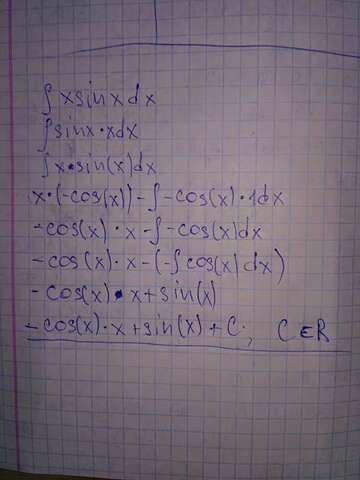 ∫xsinxdx
∫sinx·xdx
∫x·sin(x)dx
x·(-cos(x))-∫-cos(x)·1dx
-cos(x)·x-∫-cos(x)dx
-cos(x)·x-(-∫cos(x)dx)
-cos(x)·x+sin(x)
-cos(x)·x+sin(x)+C, C∈R